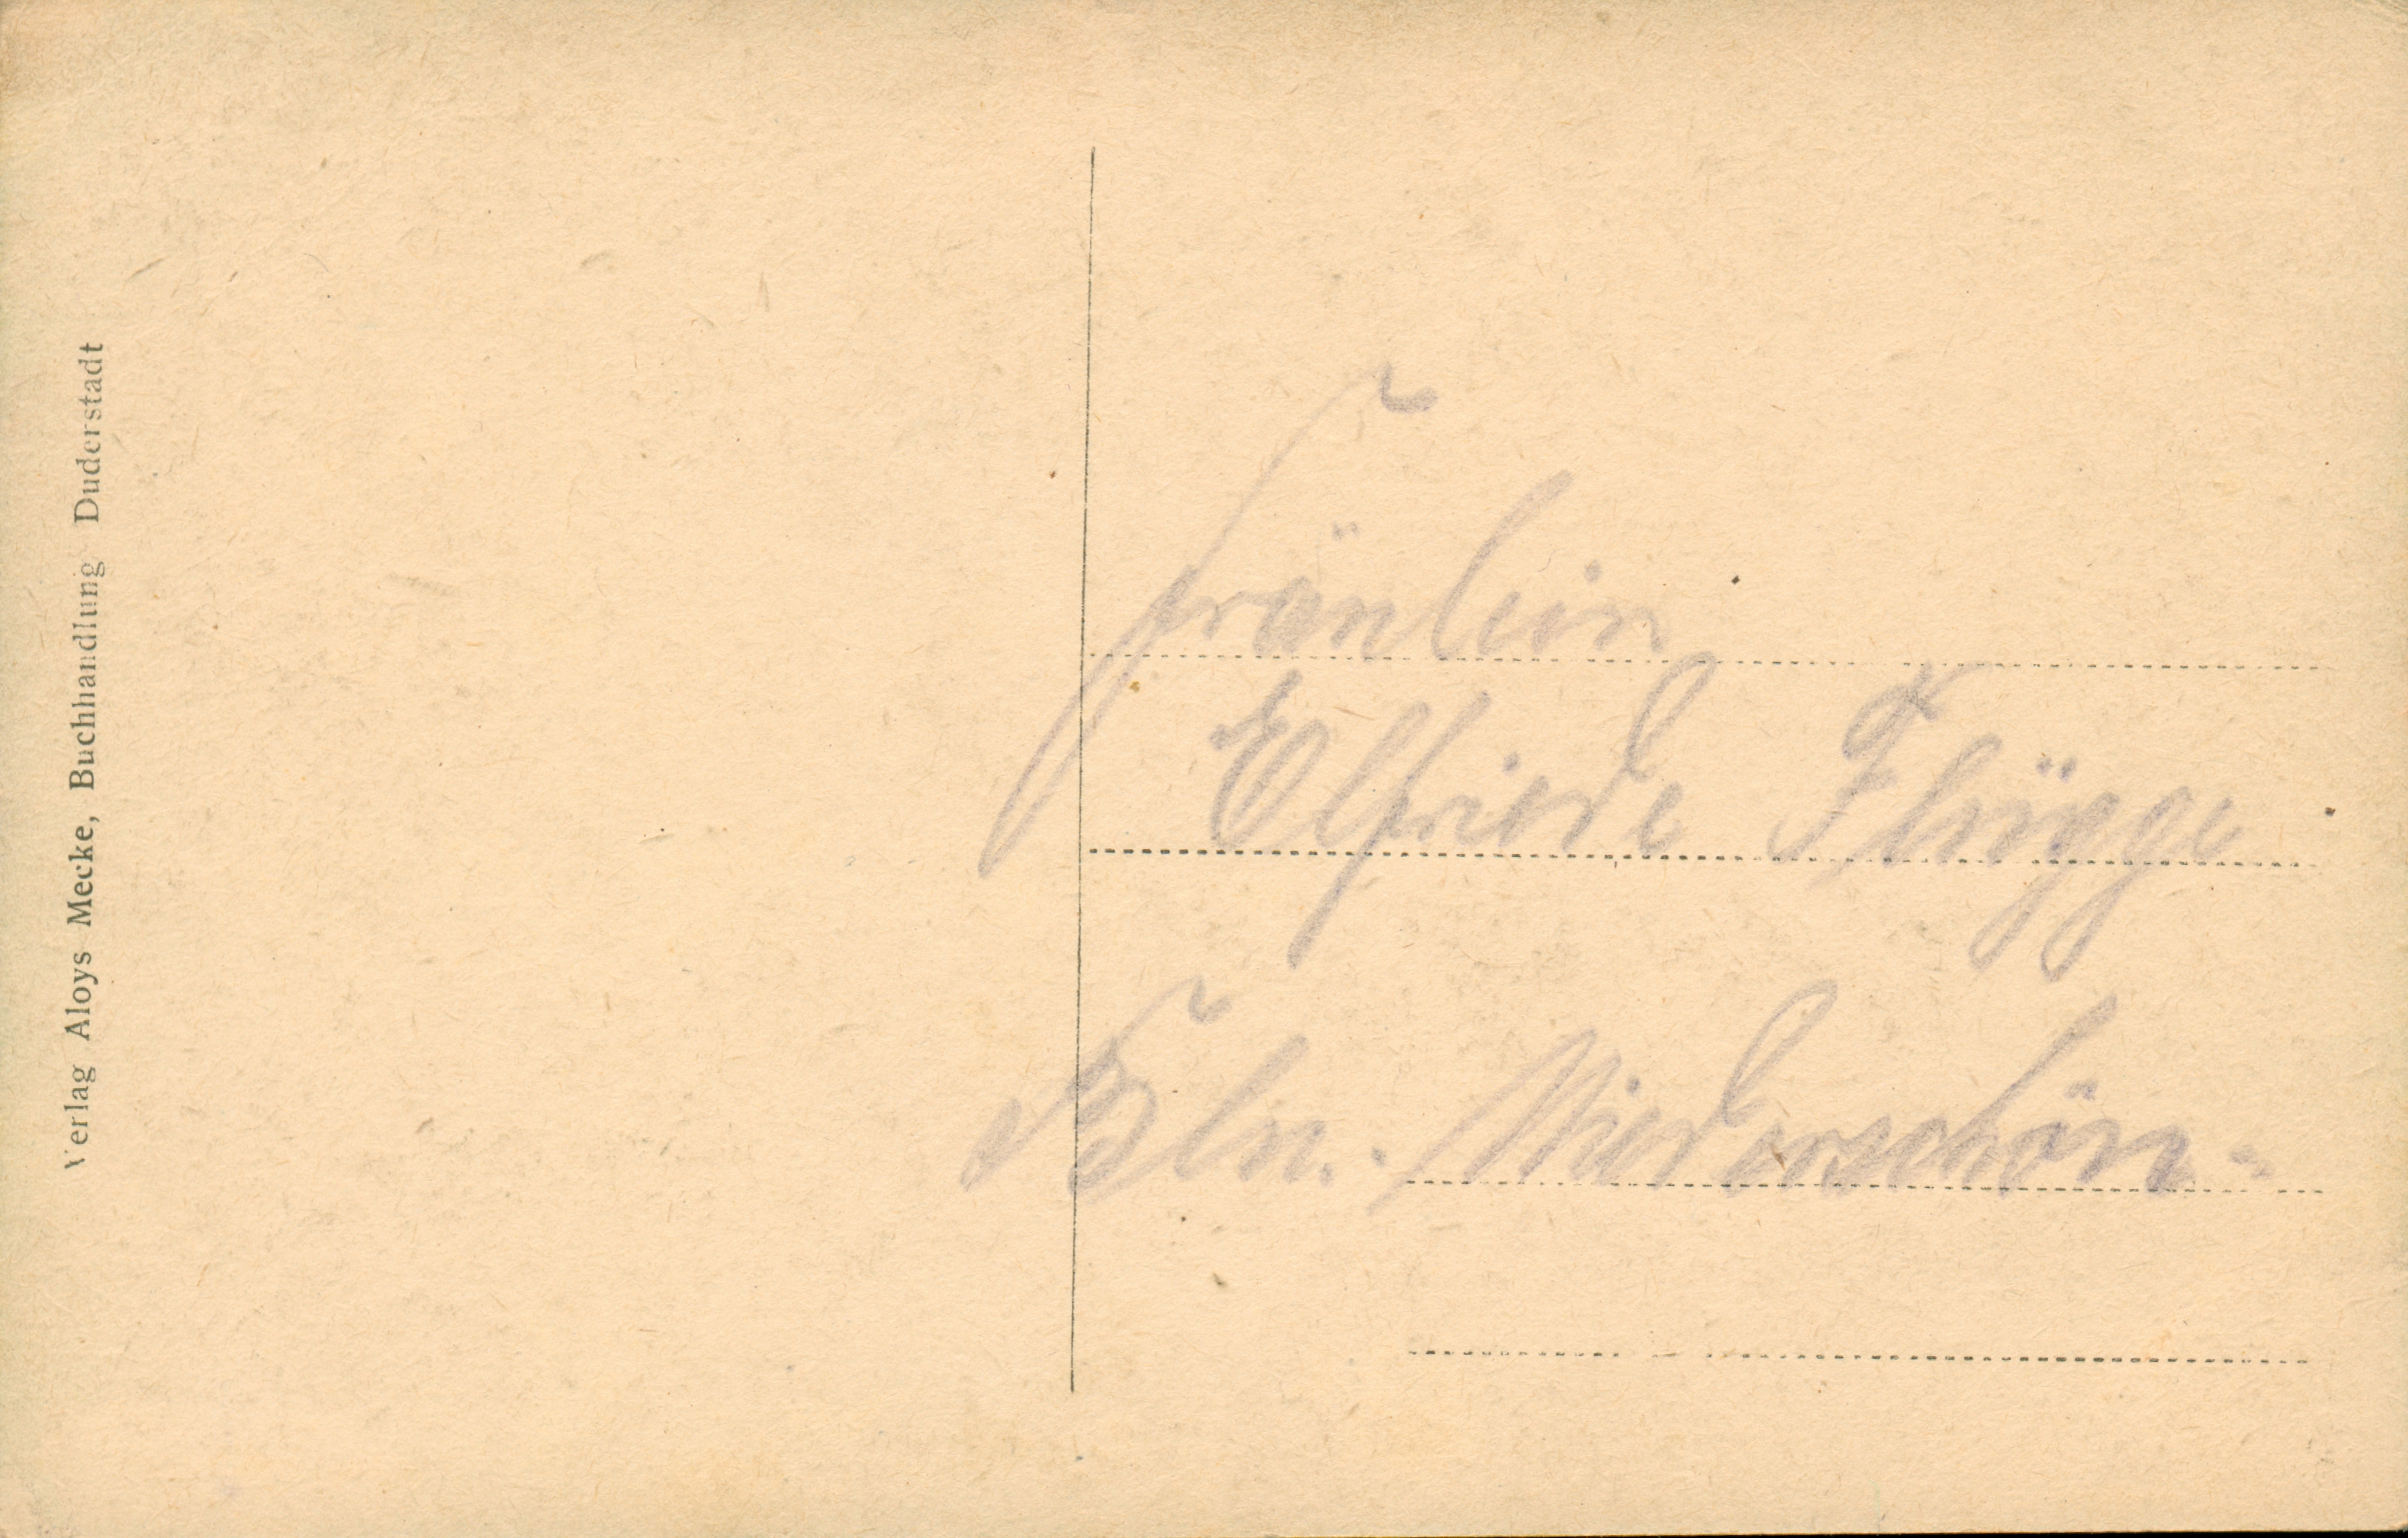 Verlag Aloys Mecke, Buchhandlung Duderstadt
Fräulein
Elfriede Flügge
Bln.-Niederschön-